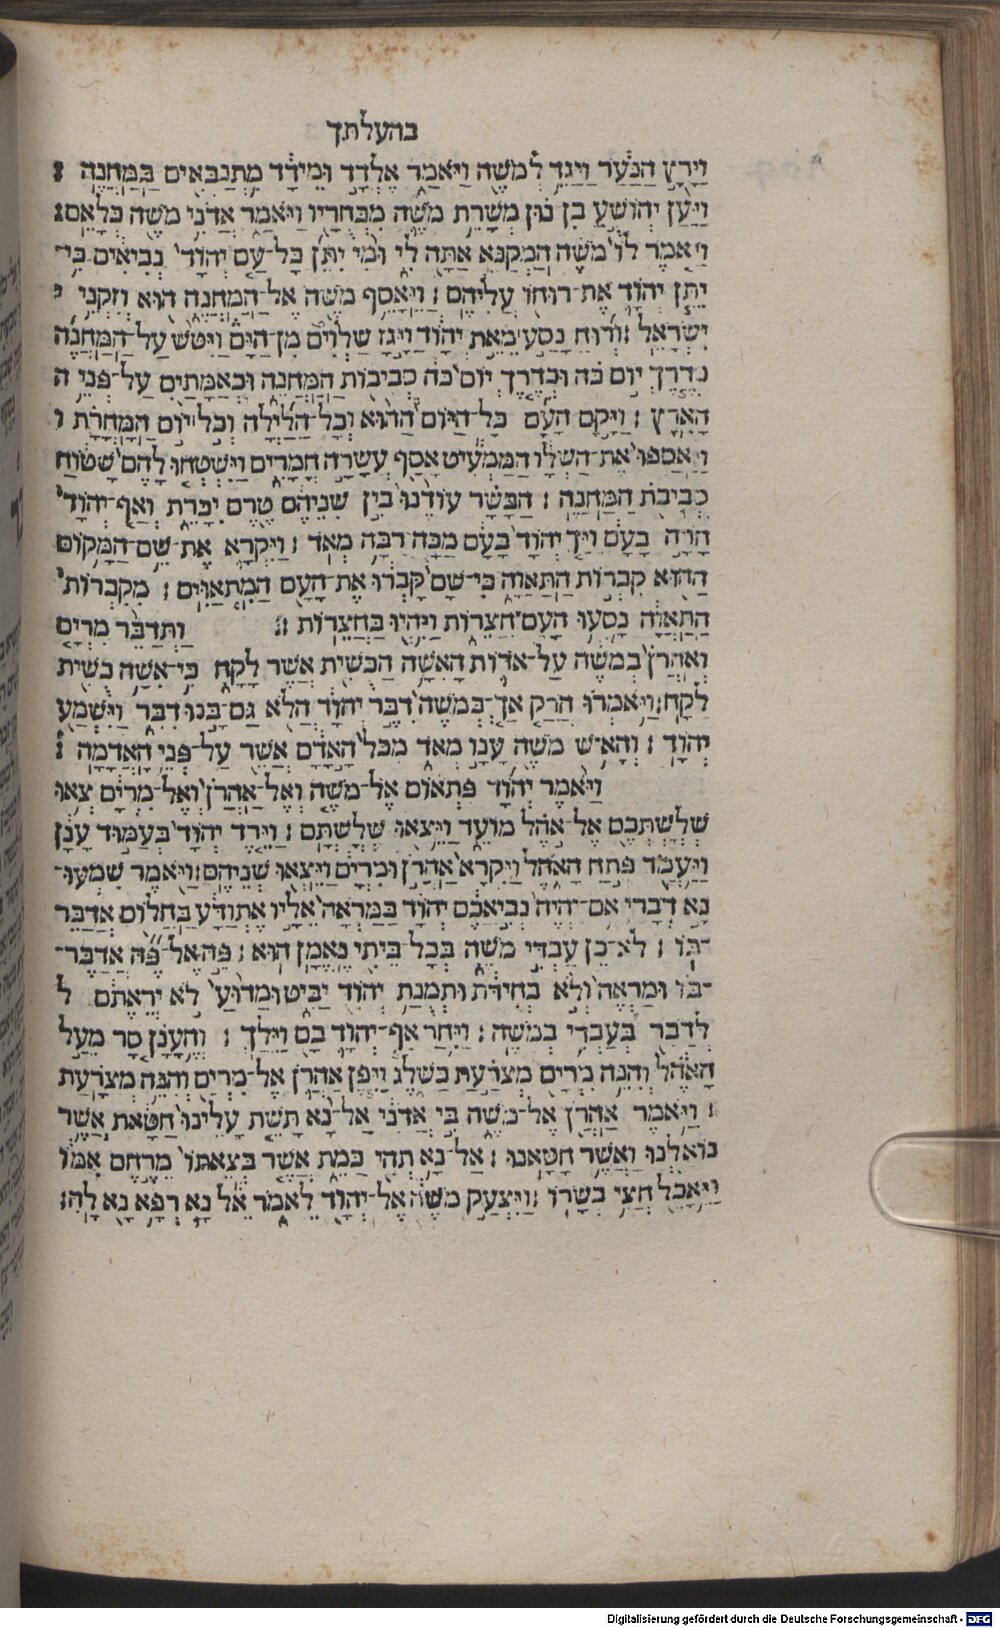 בהעלתך
וַיָּרָץ הַנַּעַר וַיַּגֵּד לְמֹשֶׁה וַיֹּאמַר אֶלְדָּד וּמֵידָד מִתְנַבְּאִים בַּמַּחֲנֶה :
וַיַּעַן יְהוֹשֻׁעַ בִּן נוּן מְשָׁרֵת מֹשֶׁה מִבְּחֻרָיו וַיֹּאמַר אֲדֹנִי מֹשֶׁה כְּלָאֵם :
וַיֹּאמֶר לוֹ מֹשֶׁה הַמְקַנֵּא אַתָּה לִי וּמִי יִתֵּן כָּל־עַם יְהוָֹד נְבִיאִים כִּי־
יִתֵּן יְהוָֹד אֶת־רוּחוֹ עֲלֵיהֶם : וַיֵּאָסֵף מֹשֶׁה אֶל־הַמַּחֲנֶה הוּא וְזִקְנֵי י
יִשְׂרָאֵל : וְרוּחַ נָסַע מֵאֵת יְהוָֹד וַיָּגָז שַׂלְוִים מִן־הַיָּם וַיִּטֹּשׁ עַל־הַמַּחֲנֶה
כְּדֶרֶךְ יוֹם כֹּה וּכְדֶרֶךְ יוֹם כֹּה סְבִיבוֹת הַמַּחֲנֶה וּכְאַמָּתַיִם עַל־פְּנֵי ה
הָאָרֶץ : וַיָּקָם הָעָם כָּל־הַיּוֹם הַהוּא וְכָל־הַלַּיְלָה וְכֹל יוֹם הַמָּחֳרָת ו
וַיַּאַסְפוּ אֶת־הַשְּׂלָו הַמַּמְעִיט אָסַף עֲשָׂרָה חֳמָרִים וַיִּשְׁטְחוּ לָהֶם שָׁטוֹחַ
סְבִיבֹת הַמַּחֲנֶה : הַבָּשָׂר עוֹדֶנּוּ בֵּין שִׁנֵּיהֶם טֶרֶם יִכָּרֵת וְאַף־יְהוָֹד
חָרָה בָעָם וַיַּךְ יְהוָֹד בָּעָם מַכָּה רַבָּה מְאֹד : וַיִּקְרָא אֶת־שֵׁם־הַמָּקוֹם
הַהוּא קִבְרוֹת הַתַּאֲוָה כִּי־שָׁם קָבְרוּ אֶת־הָעָם הַמִּתְאַוִּים : מִקִּבְרוֹת
הַתַּאֲוָה נָסְעוּ הָעָם חֲצֵרוֹת וַיִּהְיוּ בַּחֲצֵרוֹת : וַתְּדַבֵּר מִרְיָם
וְאַהֲרֹן בְּמֹשֶׁה עַל־אֹדוֹת הָאִשָּׁה הַכֻּשִׁית אֲשֶׁר לָקָח כִּי־אִשָּׁה כֻשִׁית
לָקָח : וַיֹּאמְרוּ הֲרַק אַךְ־בְּמֹשֶׁה דִּבֶּר יְהוָֹד הֲלֹא גַּם־בָּנוּ דִבֵּר וַיִּשְׁמַע
יְהוָֹד : וְהָאִישׁ מֹשֶׁה עָנָו מְאֹד מִכֹּל הָאָדָם אֲשֶׁר עַל־פְּנֵי הָאֲדָמָה :
וַיֹּאמֶר יְהוָֹד פִּתְאוֹם אֶל־מֹשֶׁה וְאֶל־אַהֲרֹן וְאֶל־מִרְיָם צְאוּ
שְׁלָשְׁתְּכֶם אֶל־אֹהֶל מוֹעֵד וַיֵּצְאוּ שְׁלָשְׁתָּם : וַיֵּרֶד יְהוָֹד בְּעַמּוּד עָנָן
וַיַּעֲמֹד פֶּתַח הָאֹהֶל וַיִּקְרָא אַהֲרֹן וּמִרְיָם וַיֵּצְאוּ שְׁנֵיהֶם : וַיֹּאמֶר שִׁמְעוּ־
נָא דְבָרָי אִם־יִהְיֶה נְבִיאֲכֶם יְהוָֹד בַּמַּרְאָה אֵלָיו אֶתְוַדָּע בַּחֲלוֹם אֲדַבֵּר
־בּוֹ : לֹא־כֵן עַבְדִּי מֹשֶׁה בְּכָל בֵּיתִי נֶאֱמָן הוּא : פֶּה אֶל־פֶּה אֲדַבֶּר־
־בּוֹ וּמַרְאֶה וְלֹא בְחִידֹת וּתְמֻנַת יְהוָֹד יַבִּיט וּמַדּוּעַ לֹא יְרֵאתֶם ל
לְדַבֵּר בְּעַבְדִּי בְמֹשֶׁה : וַיִּחַר אַף־יְהוָֹד בָּם וַיֵּלַךְ : וְהֶעָנָן סָר מֵעַל
הָאֹהֶל וְהִנֵּה מִרְיָם מְצֹרַעַת כַּשָּׁלֶג וַיִּפֶן אַהֲרֹן אֶל־מִרְיָם וְהִנֵּה מְצֹרָעַת
: וַיֹּאמֶר אַהֲרֹן אֶל־מֹשֶׁה בִּי אֲדֹנִי אַל־נָא תָשֵׁת עָלֵינוּ חַטָּאת אֲשֶׁר
נוֹאַלְנוּ וַאֲשֶׁר חָטָאנוּ : אַל־נָא תְהִי כַּמֵּת אֲשֶׁר בְּצֵאתוֹ מֵרֶחֶם אִמּוֹ
וַיֵּאָכֵל חֲצִי בְשָׂרוֹ : וַיִּצְעַק מֹשֶׁה אֶל־יְהוָֹד לֵאמֹר אֵל נָא רְפָא נָא לָהּ :
Digitalisierung gefördert durch die Deutsche Forschungsgemeinschaft - DFG